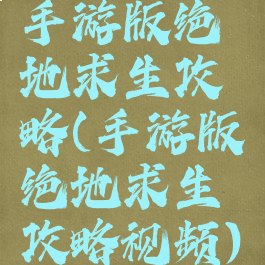 手游版绝
地求生攻
略(手游版
绝地求生
攻略视频)